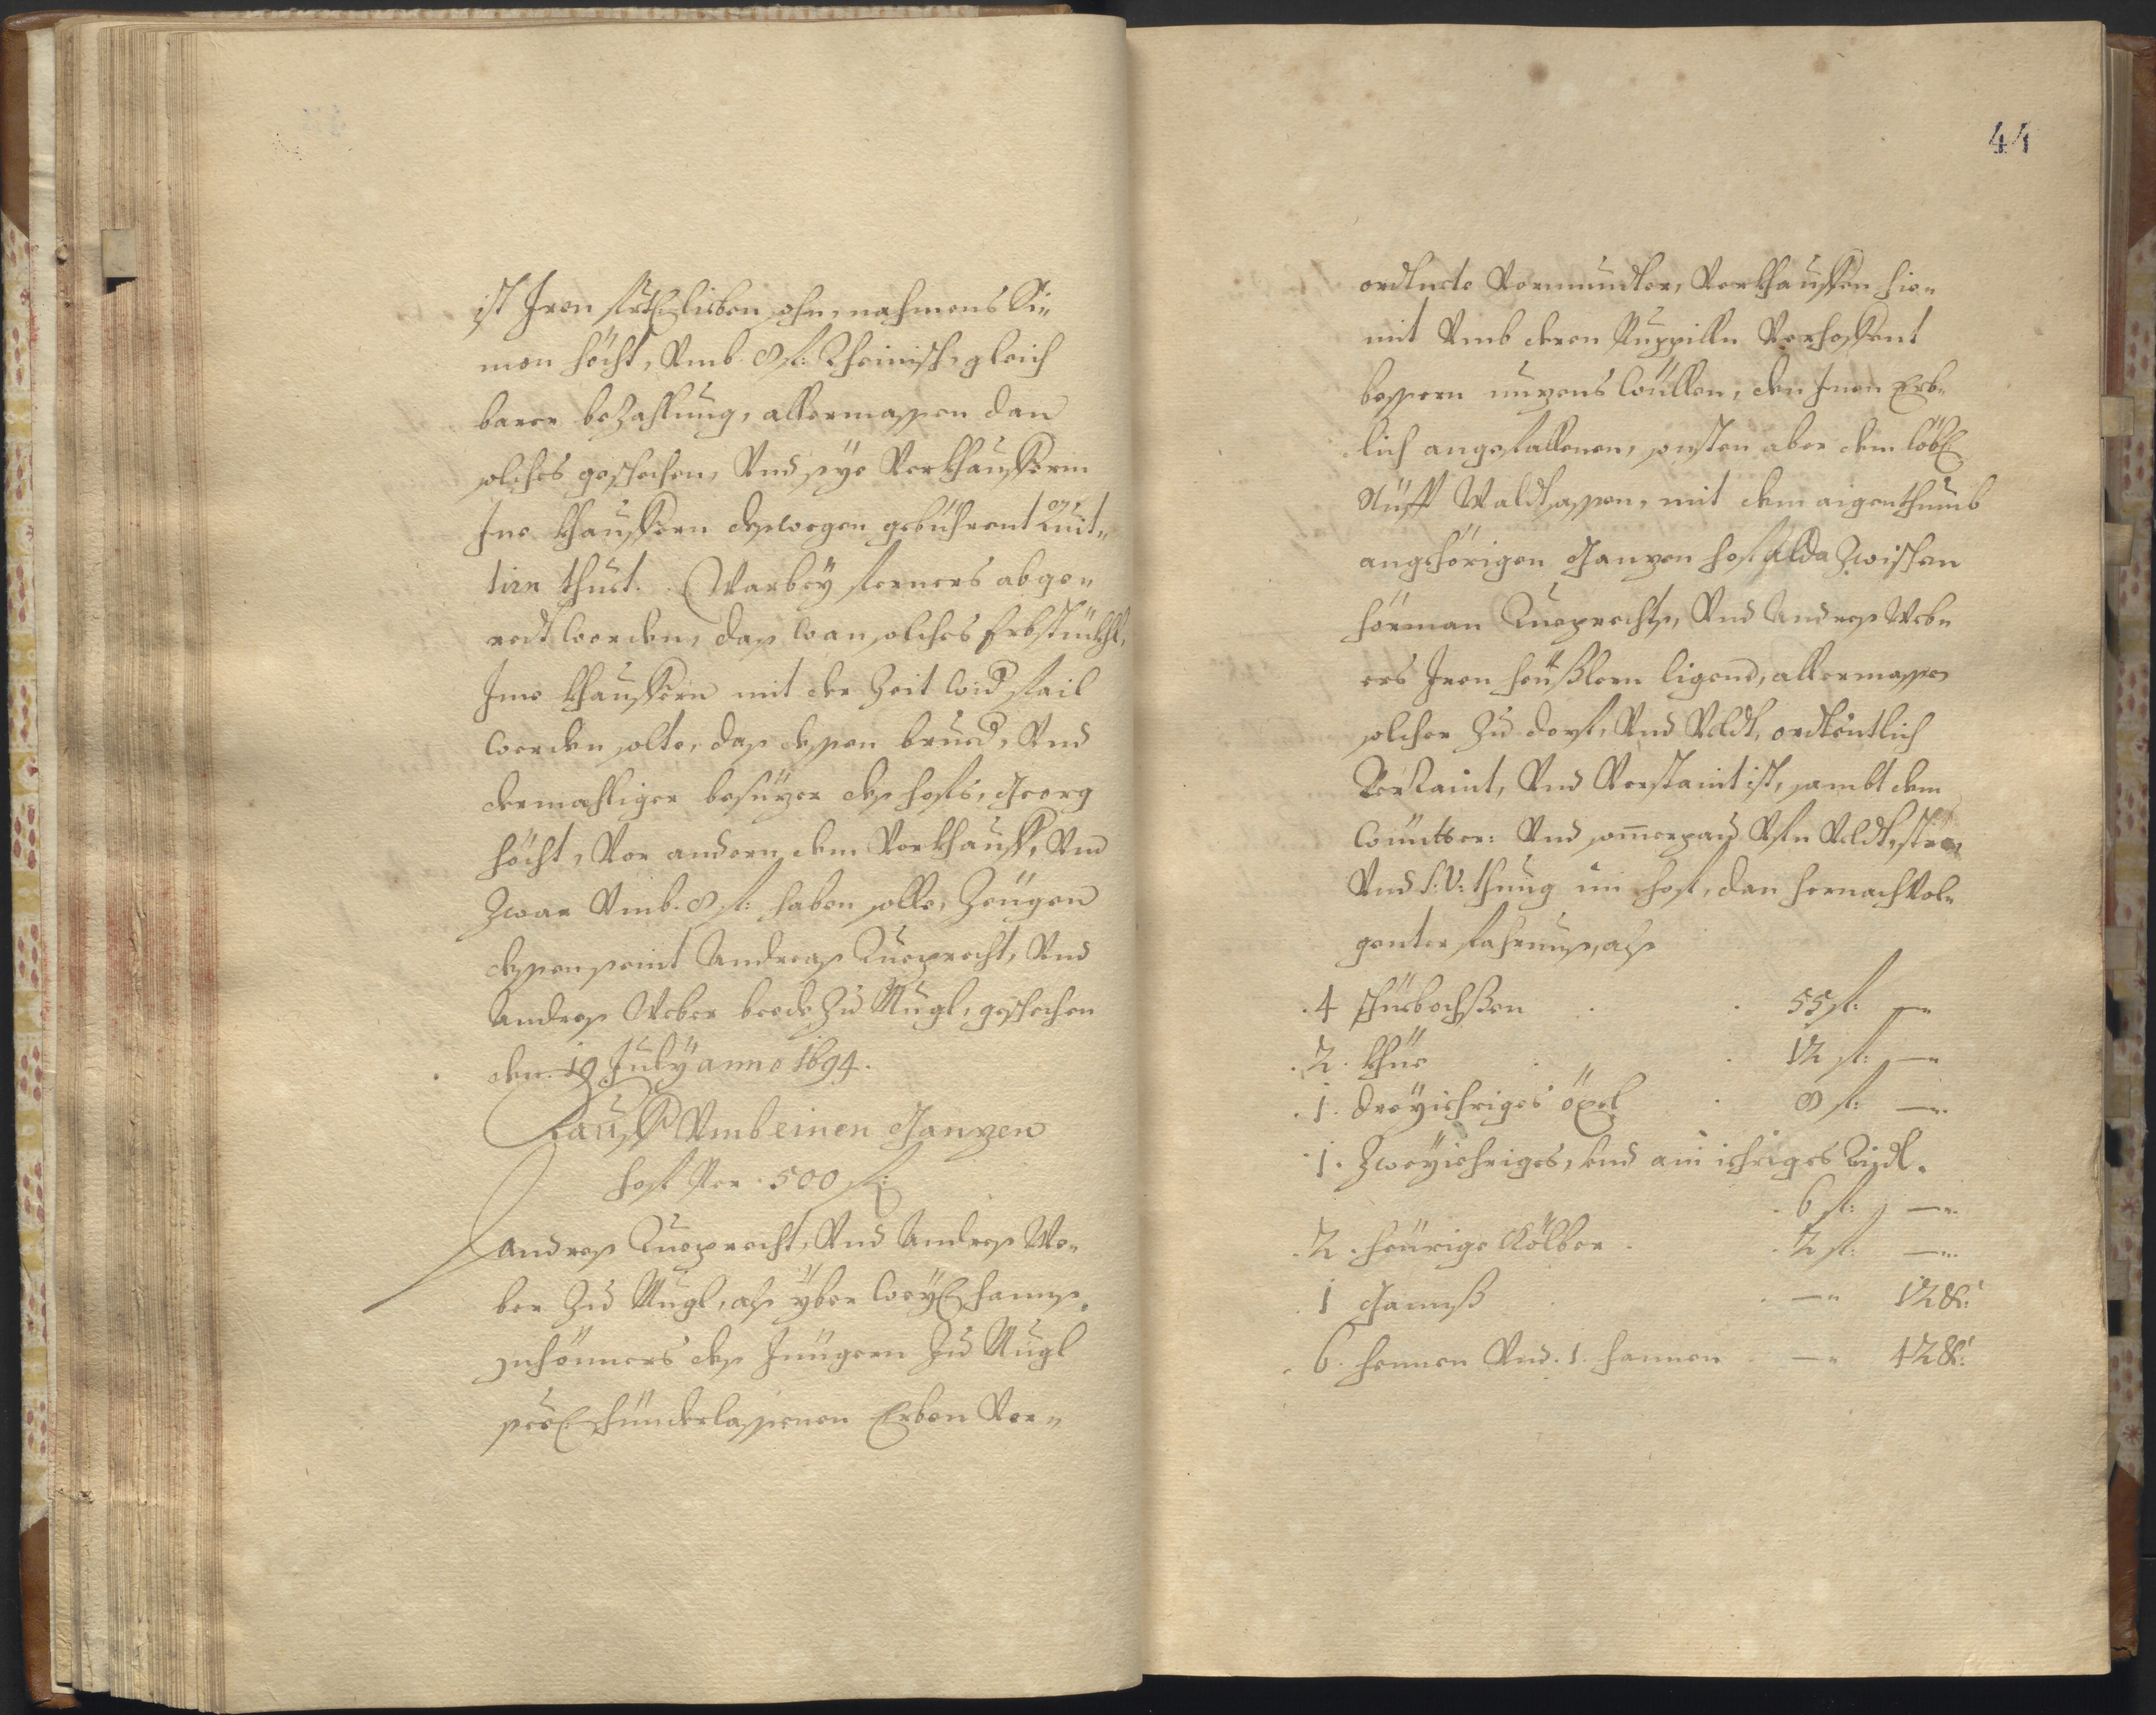 ist Iren freündtlichen lieben sohn, nahmens Si„
mon höcht, Umb 8 fl: Rheinisch, gleich
barer beZahlung, allermassen dan
solches geschehen, Und sye Verkhaufferin
Ine Khauffern deßwegen gebührent quit„
tirn thuet. Warbey ferners abge„
redt worden, das wan solches Erbstückhl,
Ime Khauffern mit der Zeit wid fail
werden solte, das dessen brued, Und
dermahliger besüzer deß hofs, Georg
höcht, Vor andern dem Vorkhauff, Und
Zwar Umb. 8 fl: haben solle, Zeügen
dessen seint Andreas Rueprecht, Und
Andreß Weber beede Zu Mugl, geschehen
den. 19 July anno 1694.
Kauff Umb einen Ganzen
hof Per. 500 fl:
Andreß Rueprecht, Und Andreß We„
ber Zu Mugl, alß yber weyl: hannß
deß Jüngern Zu Mugl
seel: hünderlassenen Erben Ver„
44
ordtnete Vormundter, Verkhauffen hie„
mit Umb deren Puppilln Verhoffent
bessern nuzens wüllen, den Inen Erb„
lich angefallenen, sonsten aber dem löbl:
Stüfft Waldtsassen, mit dem aigenthumb
angehörigen Ganzen hof alda Zwischen
hörman Rueprechts, Und Andreß Web„
ers Iren heüßlern ligend, allermassen
solcher Zu dorf, Und Veldt, ordtentlich
Verraint, Und Verstaint ist, sambt dem
Wüntter: Und sommerpau Ufn Veldt, stroe
Und S: V: thung im hof, dan hernachvol„
genter fahrnuß, alß
4 Zhuebochßen . . 55 fl: —„
2. Khüe . . 12 fl: —„
1. dreyjehriges öxel . 8 fl: —„
1. Zweyjehriges, Und ain jehriges Rindl.
. 6 fl: —„
2. heürige Kölber . . 2 fl: —„
1 Ganß . . —„ 12 kr:
6. hennen Und. 1. hannen . —„ 42 kr: